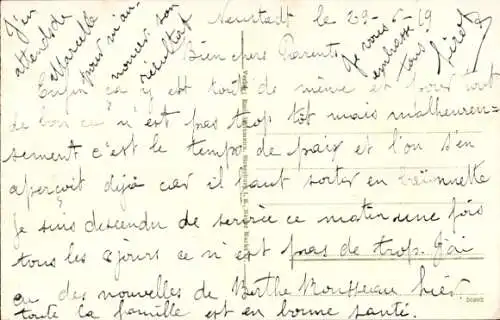 Neustadt le 29-6-19
Bien chers Parents
Enfin ça y est tout de même et pour tout
de bon ce n'est pas trop tôt mais malheureu=
sement c'est le temps de paix et l'on s'en
aperçoit déjà car il faut sortir en baïonnette
Je suis descendu de service ce matin une fois
tous les 2 jours ce n'est pas de trop. J'ai
eu des nouvelles de Berthe Mousseau hier
toute la famille est en bonne santé.
J'en
attends de
Marcelle
pour m'an
noncer son
résultat
Je vous
embrasse
tous